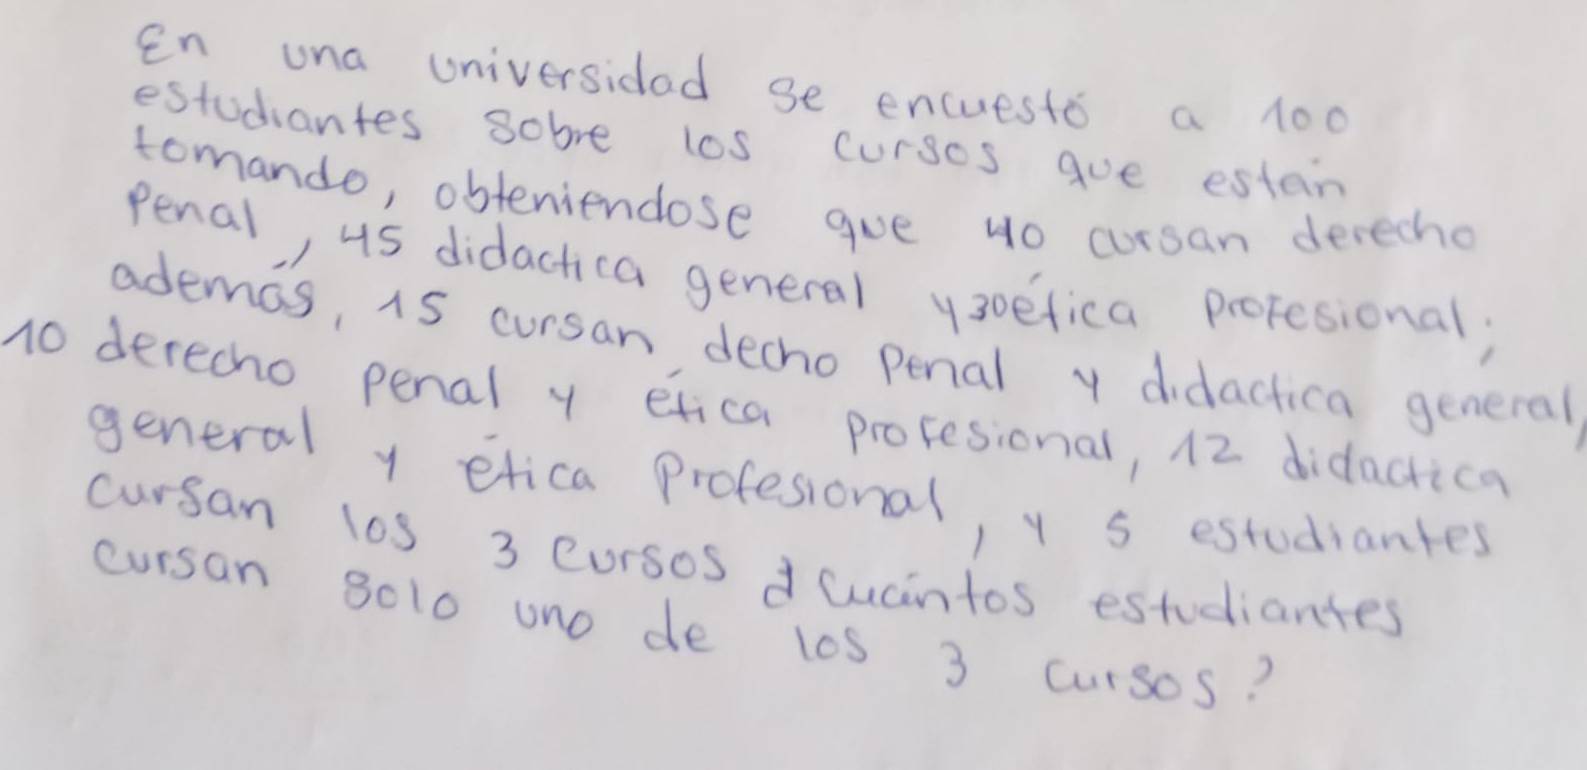 En una universidad se encuestó a 100
estudiantes sobre los cursos que están
tomando, obteniendose que 40 cursan derecho
Penal, 45 didactica general y 30 ética profesional;
además, 15 cursan decho Penal y didactica general,
10 derecho penal y ética profesional, 12 didactica
general y ética Profesional, y 5 estudiantes
cursan los 3 cursos ¿Cuántos estudiantes
cursan solo uno de los 3 cursos?